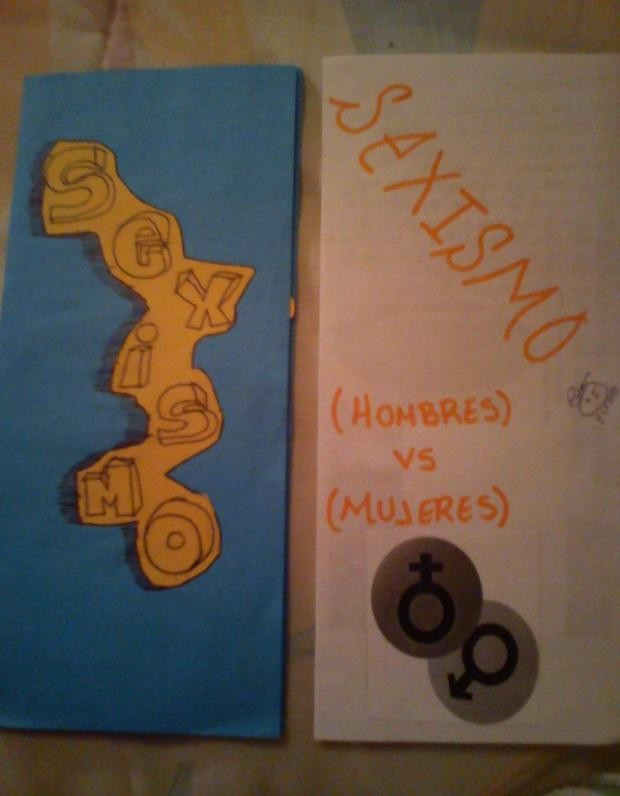 SeXiSMO
SEXISMO
(HOMBRES)
VS
(MUJERES)